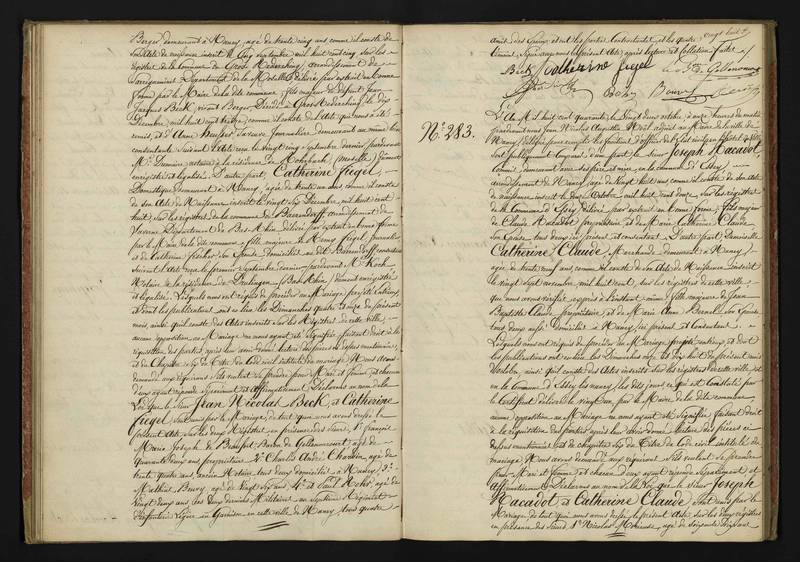 Berger demeurant à Nancy, âgé de trente cinq ans comme il conste de son
acte de naissance inscrit le septembre mil huit cent cinq sur les
registres de la commune de Gros Rederching, arrondissement de
Sarreguemines Département de la Moselle délivré par extrait en bonne
forme par le Maire de la dite commune, fils majeur de défunt Jean
Jacques Beck, vivant Berger, Décédé à Gros Rederching le dix
Décembre mil huit cent treize, comme il conste de l'acte qui nous a été
remis, et d'Anne sa veuve Journalière, demeurant au même lieu
consentante suivant acte reçu le vingt cinq septembre dernier pardevant
Me notaire à la résidence de Rohrbach (Moselle) dûment
enregistré et légalisé. D'autre part, Catherine Fiegel,
Domestique demeurant à Nancy, âgée de trente un ans comme il conste
de son acte de Naissance inscrit le vingt six Décembre, mil huit cent
huit, sur les registres de la commune de arrondissement de
Saverne Département du Bas-Rhin délivré par extrait en bonne forme
par le Maire de la dite commune, fille majeure de Fiegel Journalier
et de Catherine son épouse Domiciliés au dit consentans
suivant acte reçu le premier septembre dernier pardevant Me Koch
Notaire à la résidence de Drulingen (Bas Rhin) dûment enregistré
et légalisé. Lesquels nous ont requis de procéder au Mariage projeté entr'eux,
et dont les publications ont eu lieu les Dimanches quatre et onze du présent
mois, ainsi qu'il conste des actes inscrits sur les Registres de cette ville
aucune opposition au Mariage ne nous ayant été signifiée faisant droit à la
réquisition des parties, après leur avoir donné lecture des pièces ci dessus mentionnées,
et du Chapitre six du Titre du Code civil intitulé du mariage. Nous avons
demandé aux requérans s'ils veulent se prendre pour Mari et femme, et chacun
d'eux ayant répondu séparément et affirmativement Déclarons au nom de la
Loi que le sieur Jean Nicolas Beck, et Catherine
Fiegel sont unis par le Mariage, de tout quoi nous avons dressé le
présent acte sur les deux Registres en présence des sieurs, 1° François
Marie Joseph de Baron de Gellenoncourt âgé de
quarante deux ans propriétaire 2° Charles André âgé de
trente quatre ans, ancien Notaire, tous deux domiciliés à Nancy, 3°
Mathias Bouvy âgé de vingt six ans, 4° et Paul âgé de
vingt deux ans ces deux derniers Militaires au septième Régiment
d'infanterie Légère en garnison en cette ville de Nancy tous quatre
amis des époux, et ont les parties contractantes et les quatre
témoins, signé avec nous le présent acte, après lecture et collation faites
Beck Catherine fiegel
de Gellenoncourt
Bouvy
N° 283.
L'An Mil huit cent quarante, le vingt deux octobre, à onze heures du matin
pardevant nous Jean Nicolas Augustin Noël adjoint au Maire de la ville de
Nancy, délégué pour remplir les fonctions d'officier de l'état civil en l'hôtel de Ville
sont publiquement comparus d'une part, le sieur Joseph Hacadot,
Commis, demeurant avec ses père et mère, en la commune d'Essey,
arrondissement de Nancy, âgé de vingt huit ans, comme il conste de son acte
de naissance inscrit le douze Octobre, mil huit cent douze, sur les registres
de la Commune d'Essey, délivré par extrait en bonne forme, fils majeur
de Claude Hacadot propriétaire, et de Marie Catherine Claude
son épouse tous deux ici présens et consentans. D'autre part Demoiselle
Catherine Claude, Marchande demeurant à Nancy,
âgée de trente neuf ans, comme il conste de son acte de Naissance inscrit
le vingt sept novembre, mil huit cent, sur les registres de cette ville,
que nous avons vérifié à l'instant même, fille majeure de Jean
Baptiste Claude propriétaire, et de Marie Anne son épouse
tous deux Domiciliés à Nancy, ici présens et consentans.
Lesquels nous ont requis de procéder au Mariage projeté entr'eux, et dont
les publications ont eu lieu les Dimanches onze et dix huit du présent mois
d'octobre, ainsi qu'il conste des actes inscrits sur les registres de cette ville, et
en la Commune d'Essey les nancy, les dits jours, ce qui est constaté par
le Certificat délivré le vingt un, par le Maire de la dite commune,
aucune opposition au Mariage ne nous ayant été signifiée faisant droit
à la réquisition des parties après leur avoir donné lecture des pièces ci
dessus mentionnées, et du chapitre six du Titre du Code civil intitulé du
mariage, nous avons demandé aux requérans s'ils veulent se prendre
pour Mari et femme, et chacun d'eux ayant répondu séparément et
affirmativement Déclarons au nom de la Loi que le sieur Joseph
Hacadot, et Catherine Claude sont unis par le
Mariage, de tout quoi nous avons dressé le présent Acte, sur les deux registres
en présence des sieurs, 1° Nicolas âgé de soixante dix ans